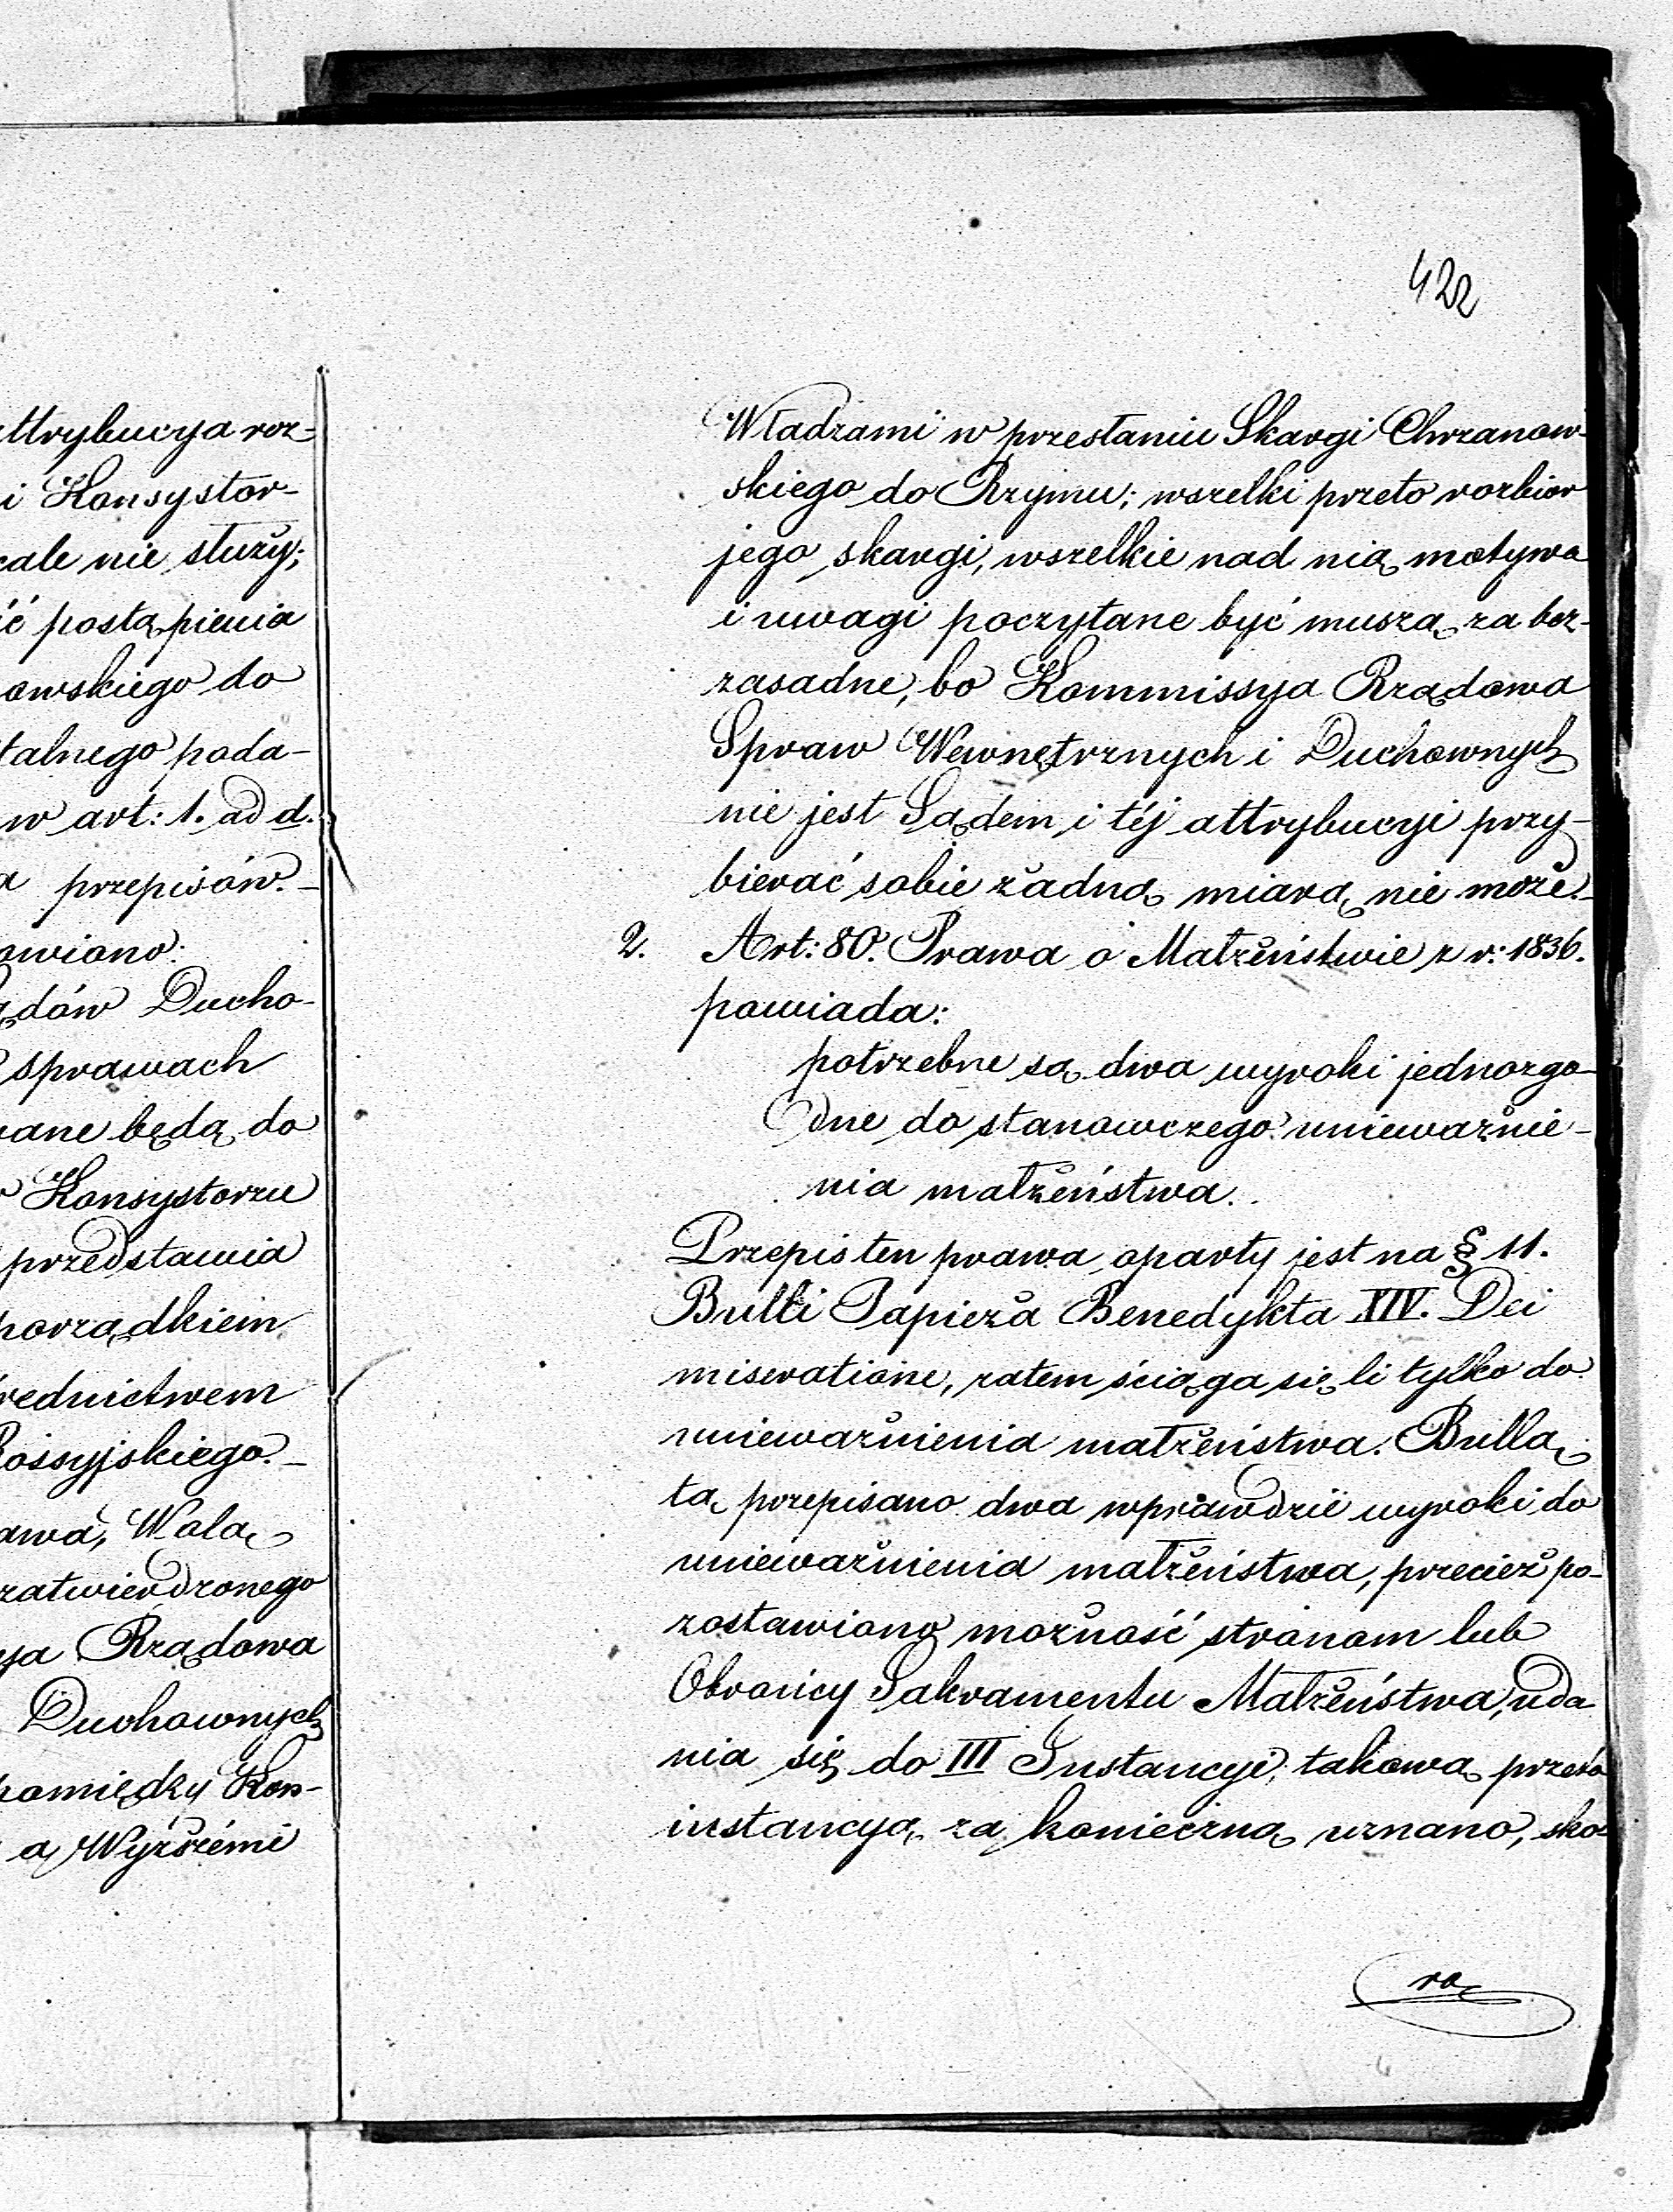 ttrybucya roz-
i Konsystor-
cale nie służy;
ić postąpienia
owskiego do
talnego poda-
w art: 1. ad d.
a przepisów.-
owiono:
ądów Ducho-
sprawach
wane będą do
Konsystorzu
przedstawia
porządkiem
średnictwem
Rossyjskiego.-
awa, Wolą
zatwierdzonego
ya Rządowa
Duchownych
pomiędzy Kon-
a Wyższémi
422
Władzami w przesłaniu Skargi Chrzanow-
skiego do Rzymu; wszelki przeto rozbior
jego skargi, wszelkie nad nią motywa
i uwagi poczytane być muszą za bez-
zasadne, bo Kommissya Rządowa
Spraw Wewnętrznych i Duchownych
nie jest Sądem i téj attrybucyi przy-
bierać sobie żadną miarą nie może.-
2. Art: 80. Prawa o Małżeństwie z r: 1836.
powiada:
potrzebne są dwa wyroki jednozgo-
dne do stanowczego unieważnie-
nia małżeństwa.
Przepis ten prawa oparty jest na § 11.
Bulli Papieża Benedykta XIV. Dei
miseratione, zatem ściąga się li tylko do
unieważnienia małżeństwa. Bullą
tą przepisano dwa wprawdzie wyroki do
unieważnienia małżeństwa, przecież po-
zostawiono możność stronom lub
Obrońcy Sakramentu Małżeństwa, uda
nia się do III Instancyi; takową przeto
instancyą za konieczną uznano, sko-
ro